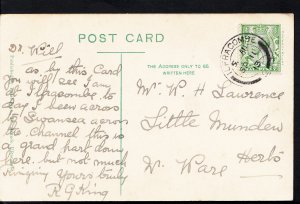 POST CARD
THE ADDRESS ONLY TO BE
WRITTEN HERE
ILFRACOMBE
Dr. Will
as by this Card
you will see I am
at Ilfracombe to
day I been acros
to Swansea acros
the Channel this is
a grand part down
here but not much
Ringing Yours truly
R G King
Mr. W H Lawrence
Little Munden
Nr. Ware Herts